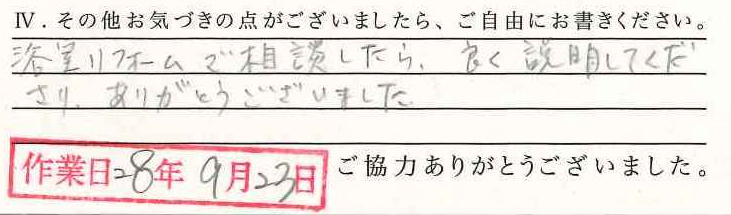 Ⅳ．その他お気づきの点がございましたら、ご自由にお書きください。
浴室リフォームで相談したら、良く説明してくだ
さり、ありがとうございました
作業日28年9月23日
ご協力ありがとうございました。